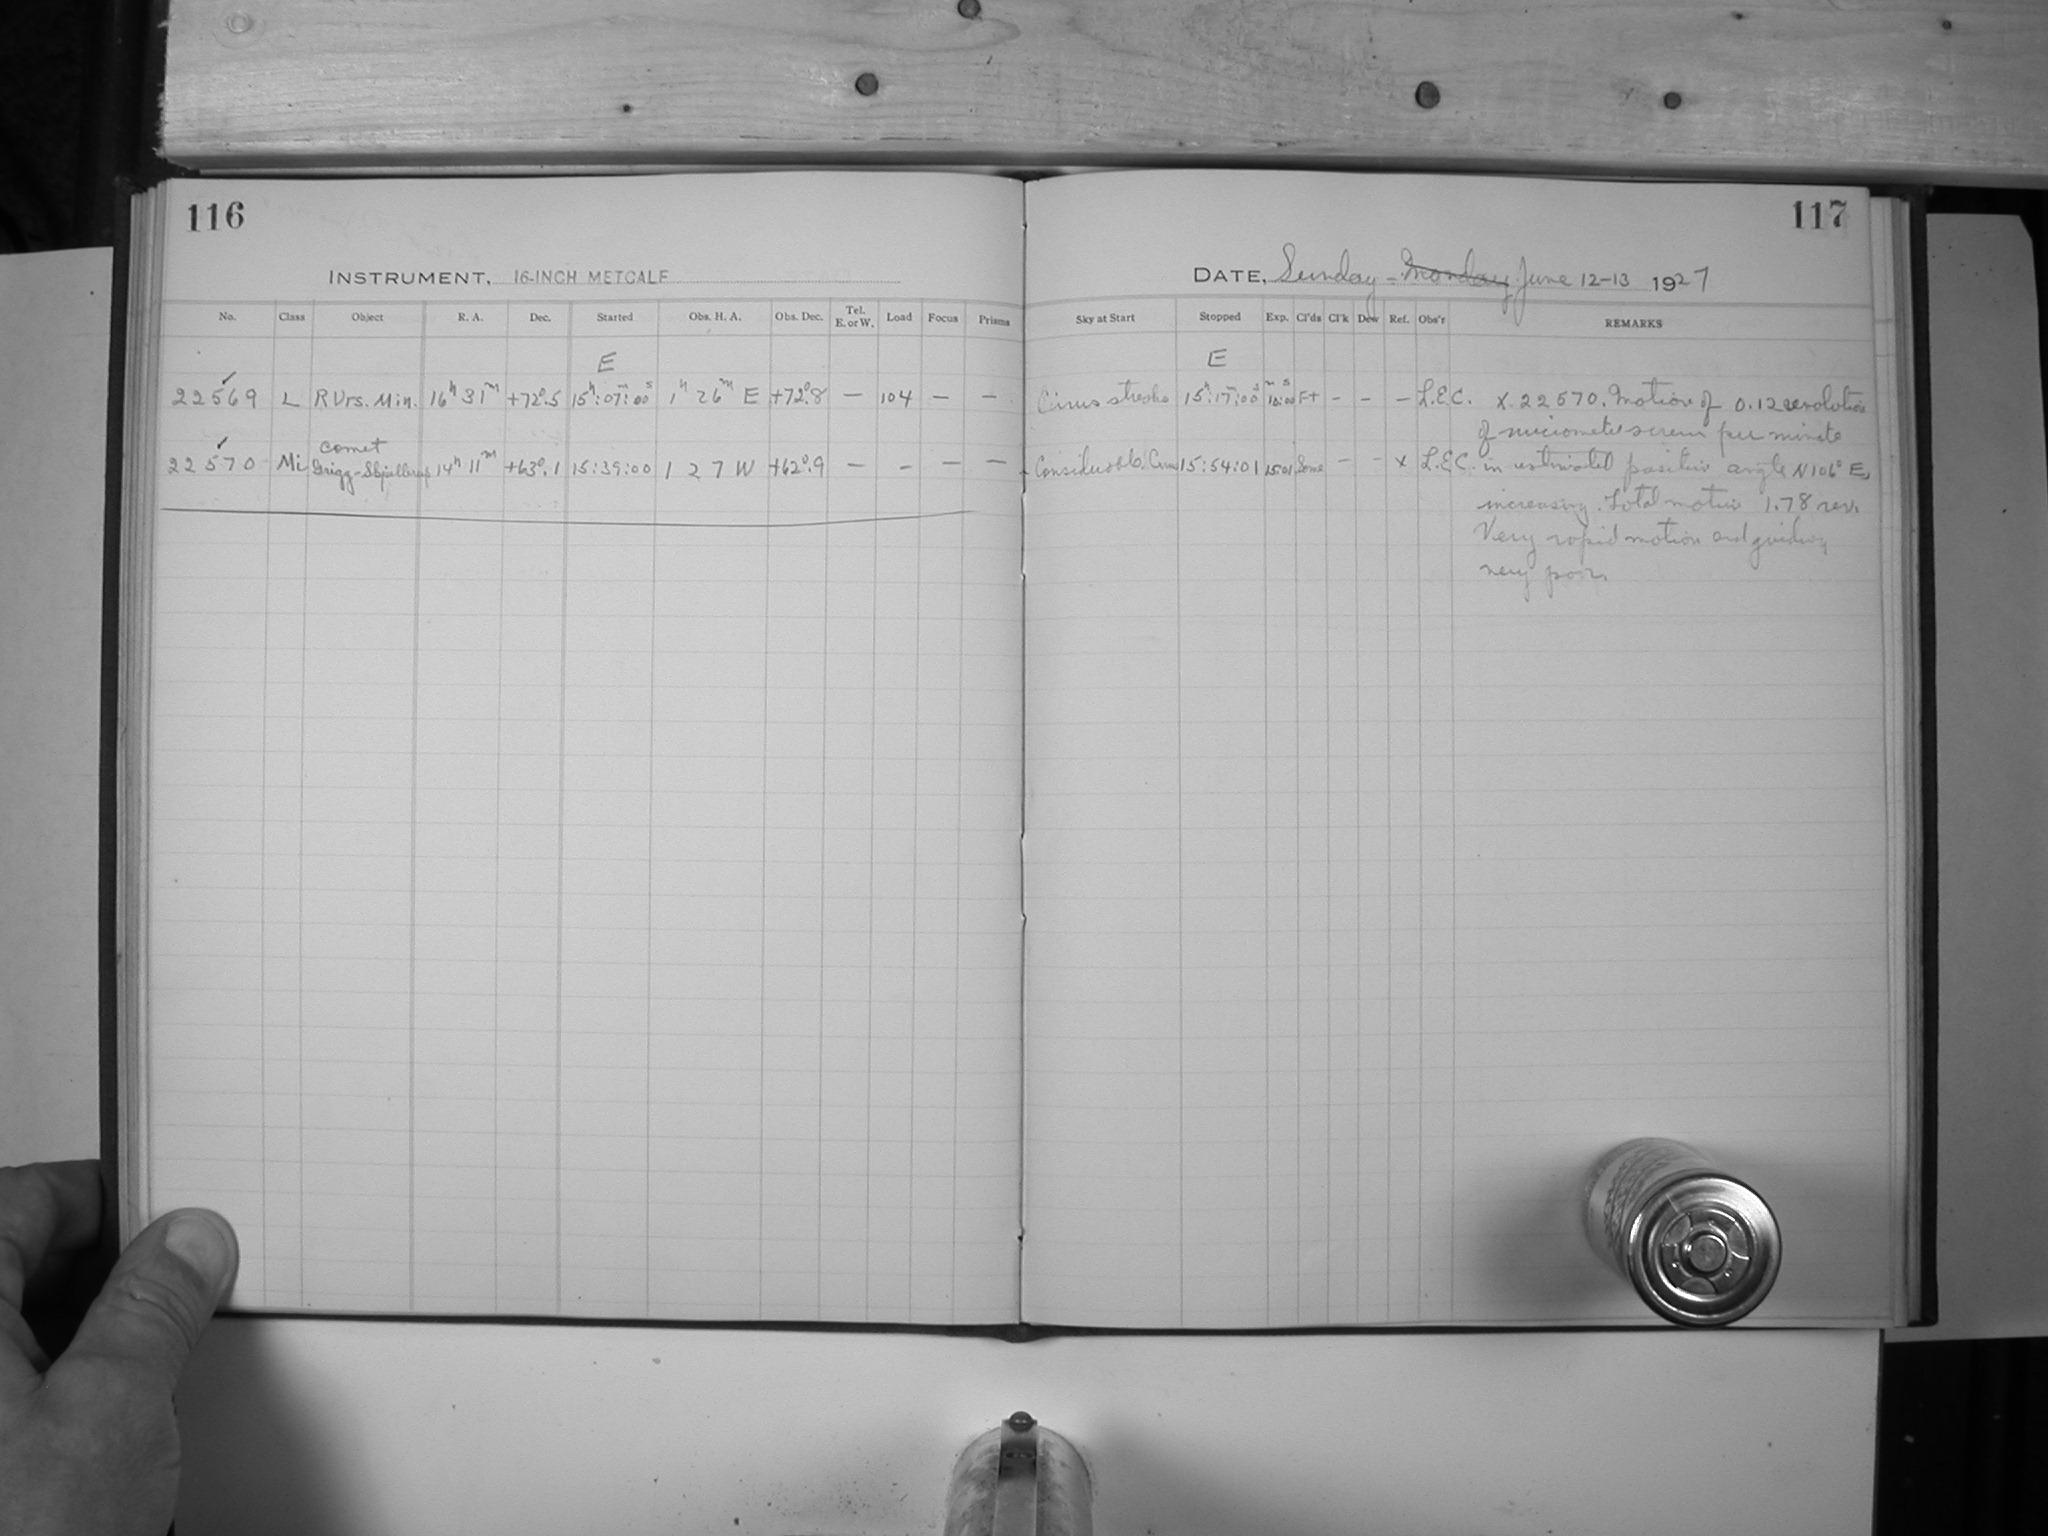 116
INSTRUMENT, 16-INCH METCALF
No. Class Object R. A. Dec. Started Obs. H. A. Obs. Dec. Tel. E. or W. Load Focus Prisms
E
22569 L R Urs. Min. 16h 31m +72°.5 15h:07m:00s 1h 26m E +72°.8 — 104 — —
comet
22570 Mi Grigg-Skjellerup 14h 11m +63°.1 15:39:00 1 27 W +62°.9 — — — —
117
DATE, Sunday - Monday June 12-13 1927
Sky at Start Stopped Exp. Cl'ds Cl'k Dew Ref. Obs'r REMARKS
E
Cirrus streaks 15h:17m:00s 10m:00s Ft — — — L.E.C. X. 22570. Motion of 0.12 revolution
of micrometer screw per minute
Considerable Cirrus 15:54:01 15:01 Some — — x L.E.C. in estimated position angle N 106° E,
increasing. Total motion 1.78 rev.
Very rapid motion and guiding
very poor.